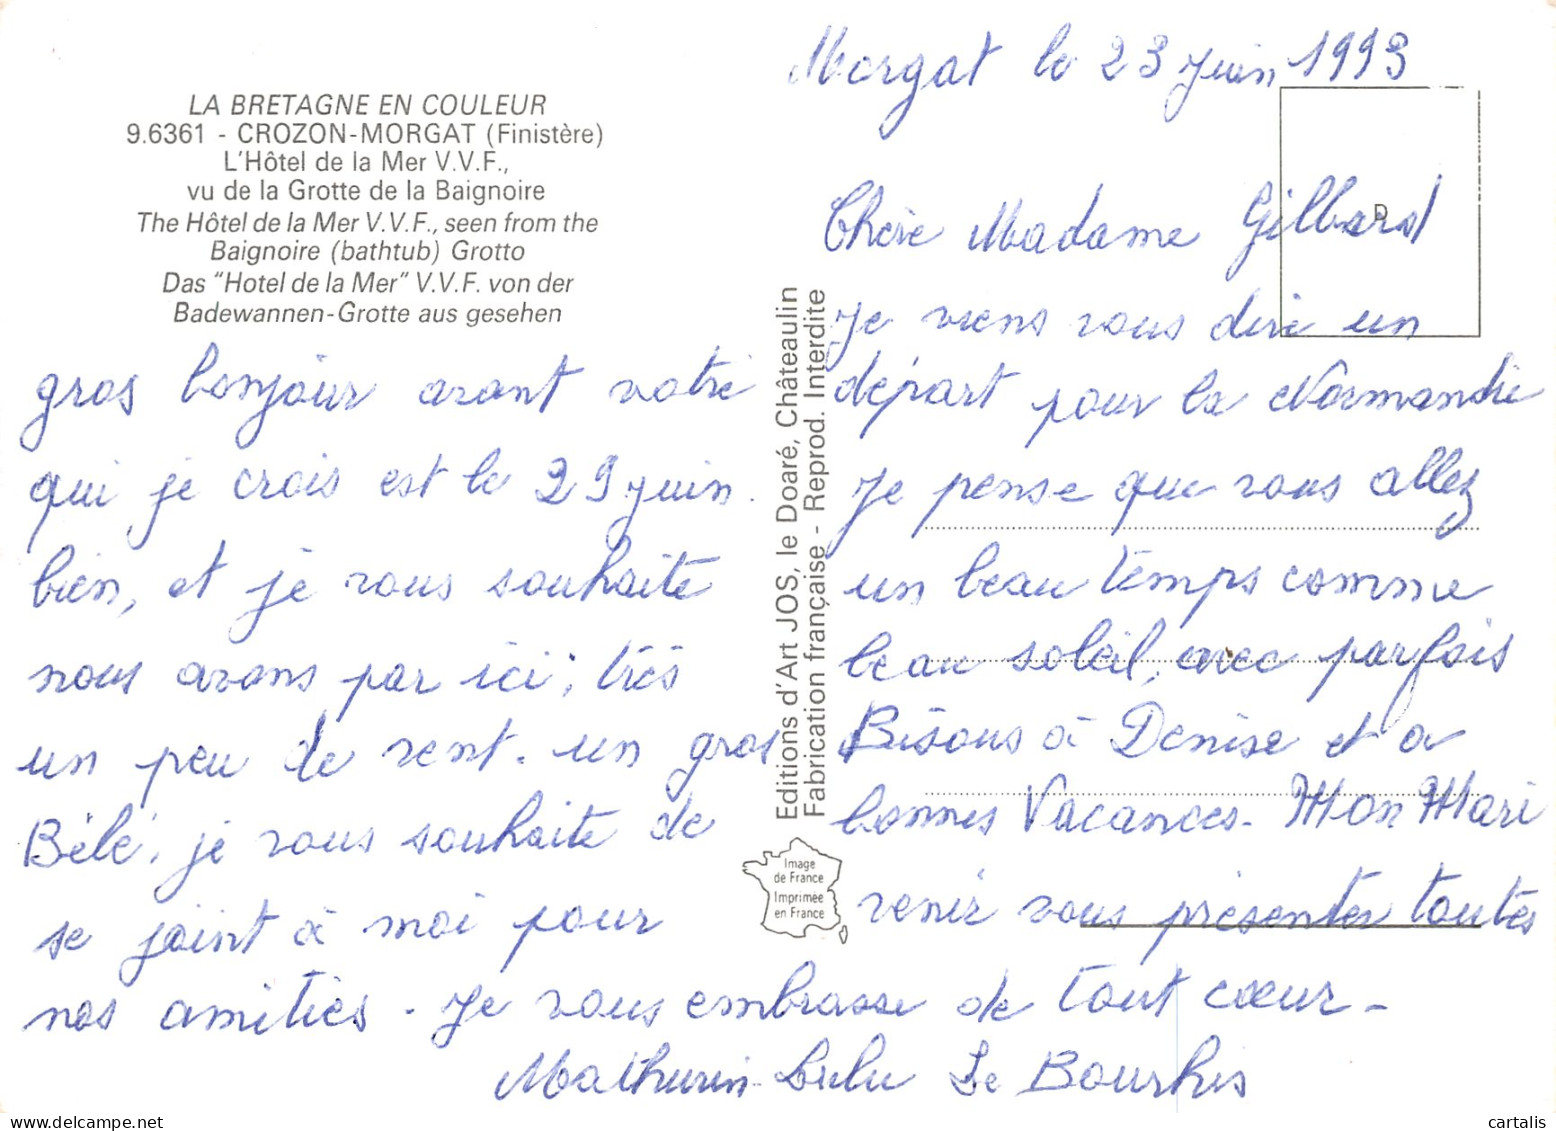 Morgat le 23 juin 1993
LA BRETAGNE EN COULEUR
9.6361 - CROZON-MORGAT (Finistère)
L'Hôtel de la Mer V.V.F.,
vu de la Grotte de la Baignoire
The Hôtel de la Mer V.V.F., seen from the
Baignoire (bathtub) Grotto
Das "Hotel de la Mer" V.V.F. von der
Badewannen-Grotte aus gesehen
D
Chère Madame Gilbard
Je viens vous dire un
gros bonjour avant votre départ pour la Normandie
qui je crois est le 29 juin. Je pense que vous allez
bien, et je vous souhaite un beau temps comme
nous avons par ici; très beau soleil, avec parfois
un peu de vent. un gros Bisous à Denise et a
Bélé, je vous souhaite de bonnes Vacances- Mon Mari
se joint à moi pour venir vous présenter toutes
nos amitiés. Je vous embrasse de tout cœur-
Mathurin- Lulu Le Bourhis
Editions d'Art JOS, le Doaré, Châteaulin
Fabrication française - Reprod. Interdite
Image
de France
Imprimée
en France
cartalis